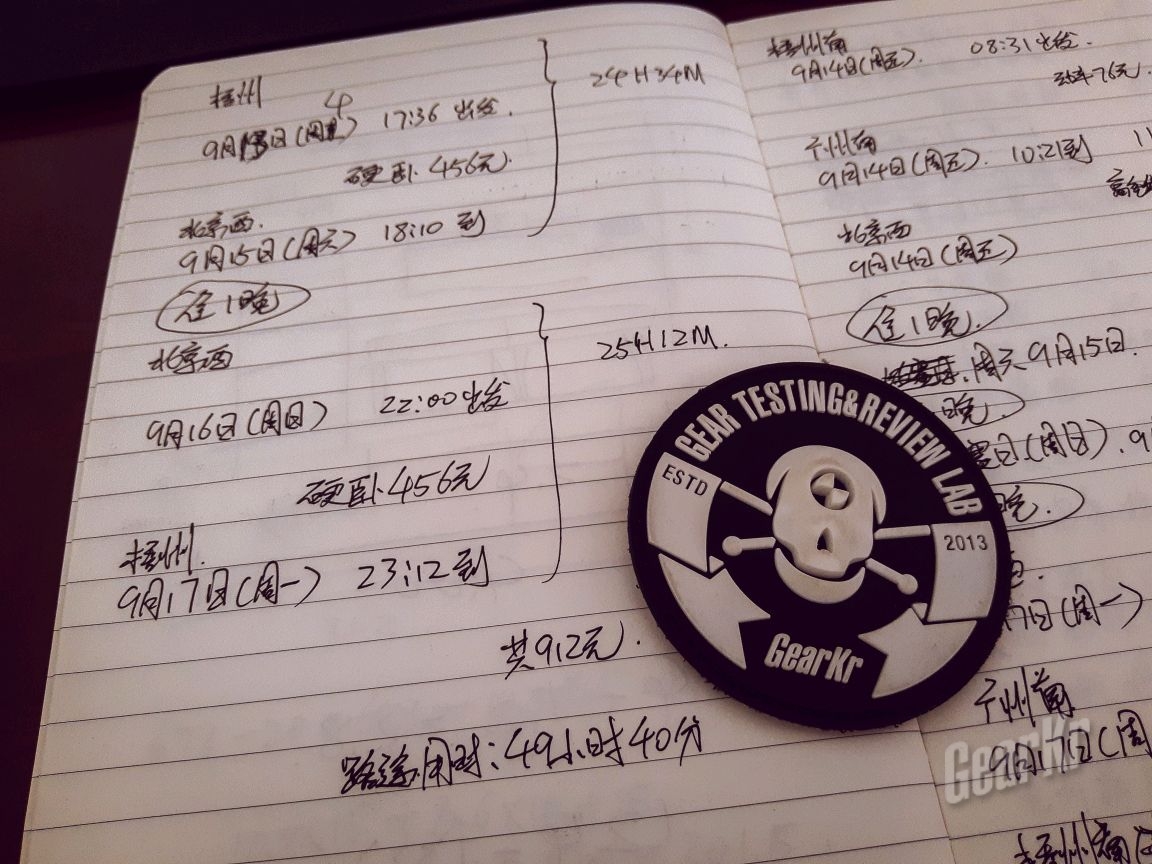 梧州
4
9月日(周五) 17:36 出发.
24H34M
硬卧 456元
北京西
9月15日(周六) 18:10 到
住1晚
北京西
25H12M.
9月16日(周日) 22:00 出发
硬卧 456元
梧州
9月17日(周一) 23:12 到
共912元.
路途用时:49小时40分
梧州南
9月14日(周五). 08:31 出发.
动车76元.
广州南
9月14日(周五). 10:21到 11
高铁
北京西
9月14日(周五)
住1晚.
周六 9月15日.
晚
日(周日).
晚.
17日(周一)
广州南
9月17日(周
梧州南
GEAR TESTING&REVIEW LAB
ESTD
2013
GearKr
GearKr